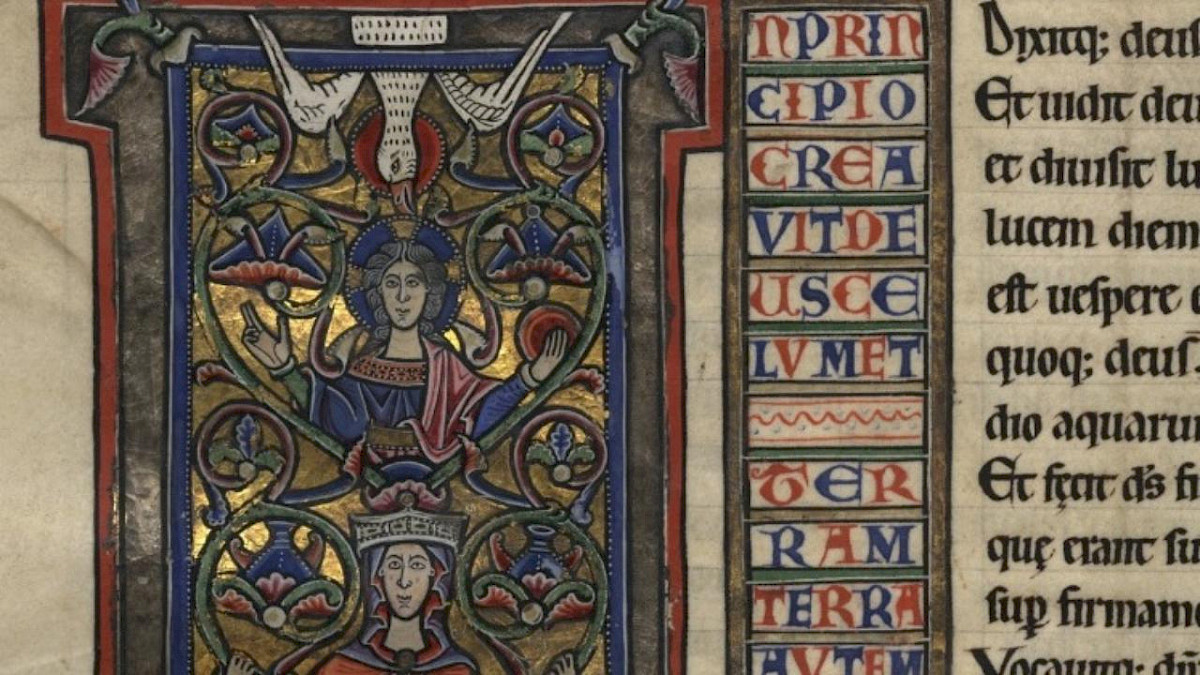 NPRIN
CIPIO
CREA
VITDE
USCE
LVMET
TER
RAM
TERRA
AVTEM
Dixitq; deuſ
Et uidit deu
et diuiſit lu
lucem diem
eſt ueſpere
quoq; deuſ.
dio aquaru
Et fecit dſ̄ fi
quę erant ſu
ſup̱ firmame
Vocauitq; d